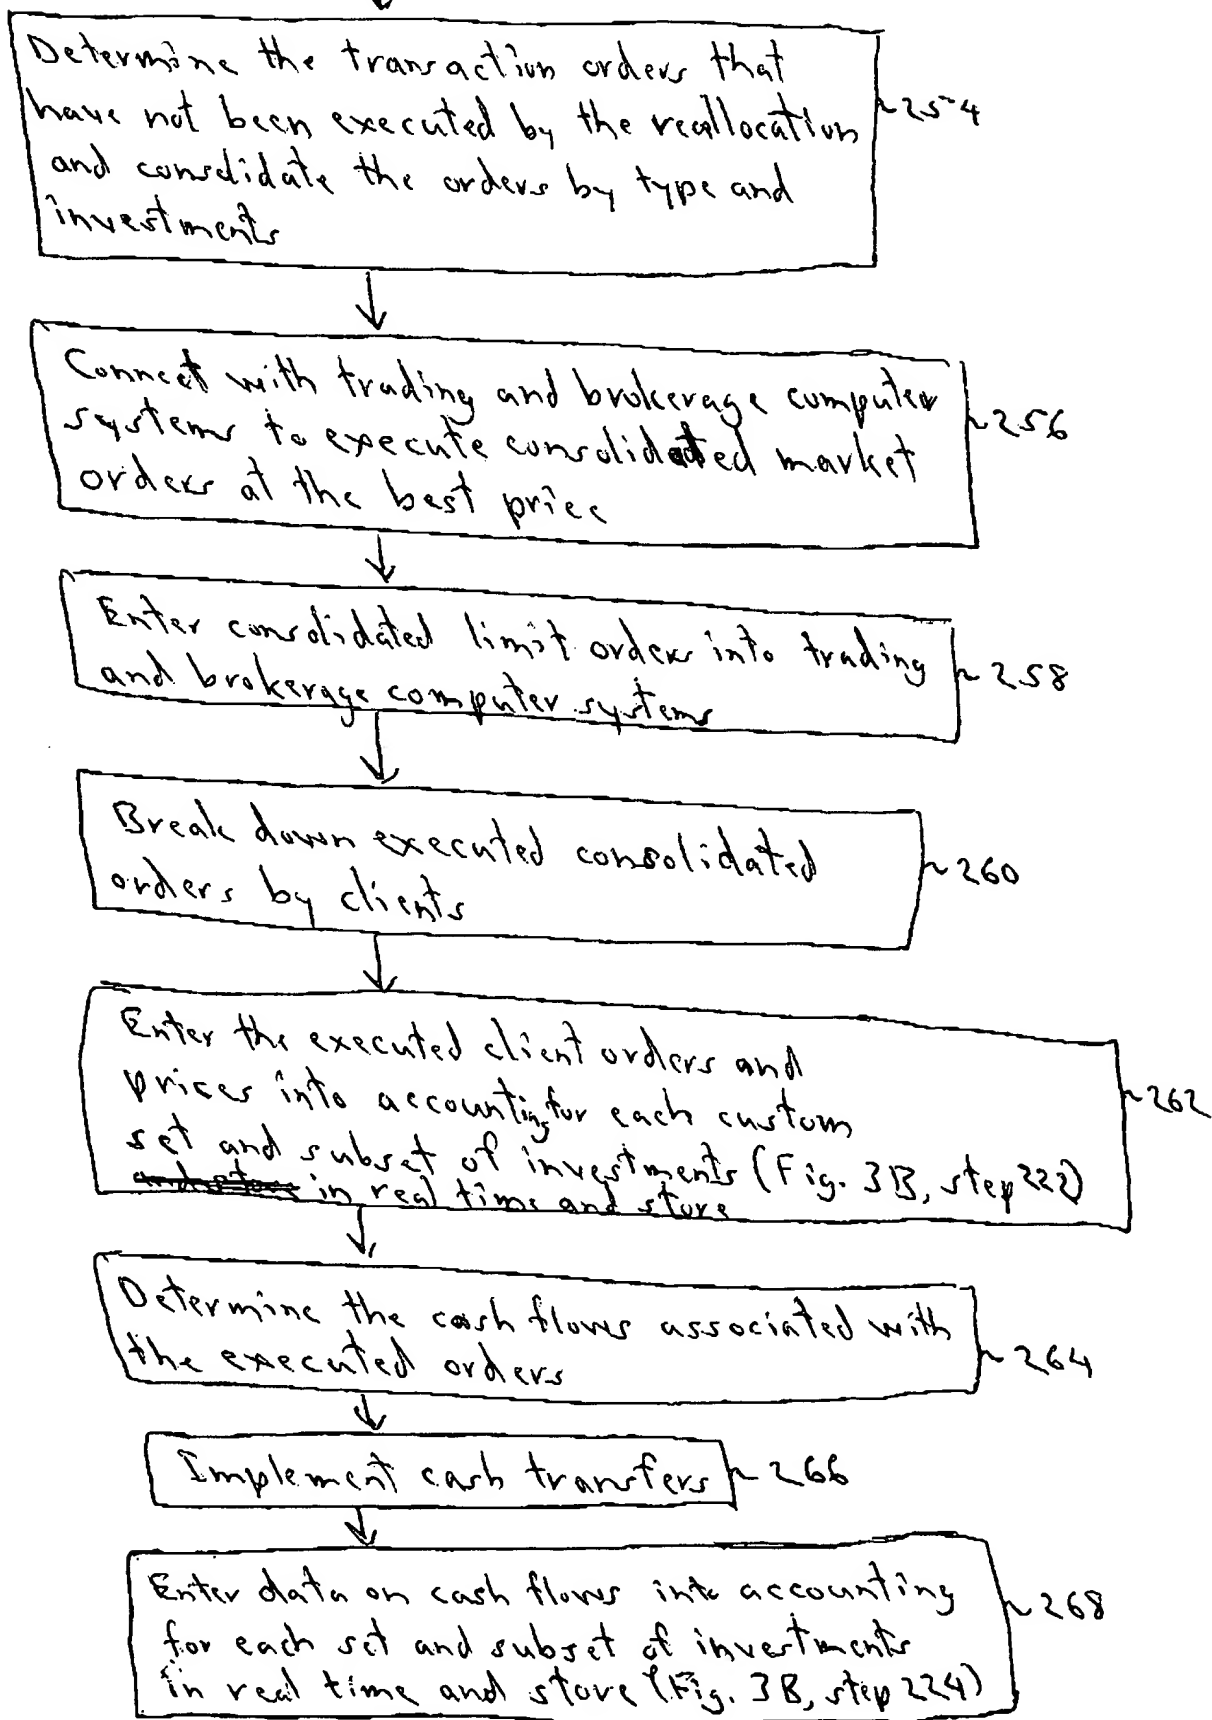 Determine the transaction orders that
have not been executed by the reallocation
and consolidate the orders by type and
investments
~254
Connect with trading and brokerage computer
systems to execute consolidated market
orders at the best price
~256
Enter consolidated limit orders into trading
and brokerage computer systems
~258
Break down executed consolidated
orders by clients
~260
Enter the executed client orders and
prices into accounting for each custom
set and subset of investments (Fig. 3B, step 222)
and store in real time and store
~262
Determine the cash flows associated with
the executed orders
~264
Implement cash transfers
~266
Enter data on cash flows into accounting
for each set and subset of investments
in real time and store (Fig. 3B, step 224)
~268